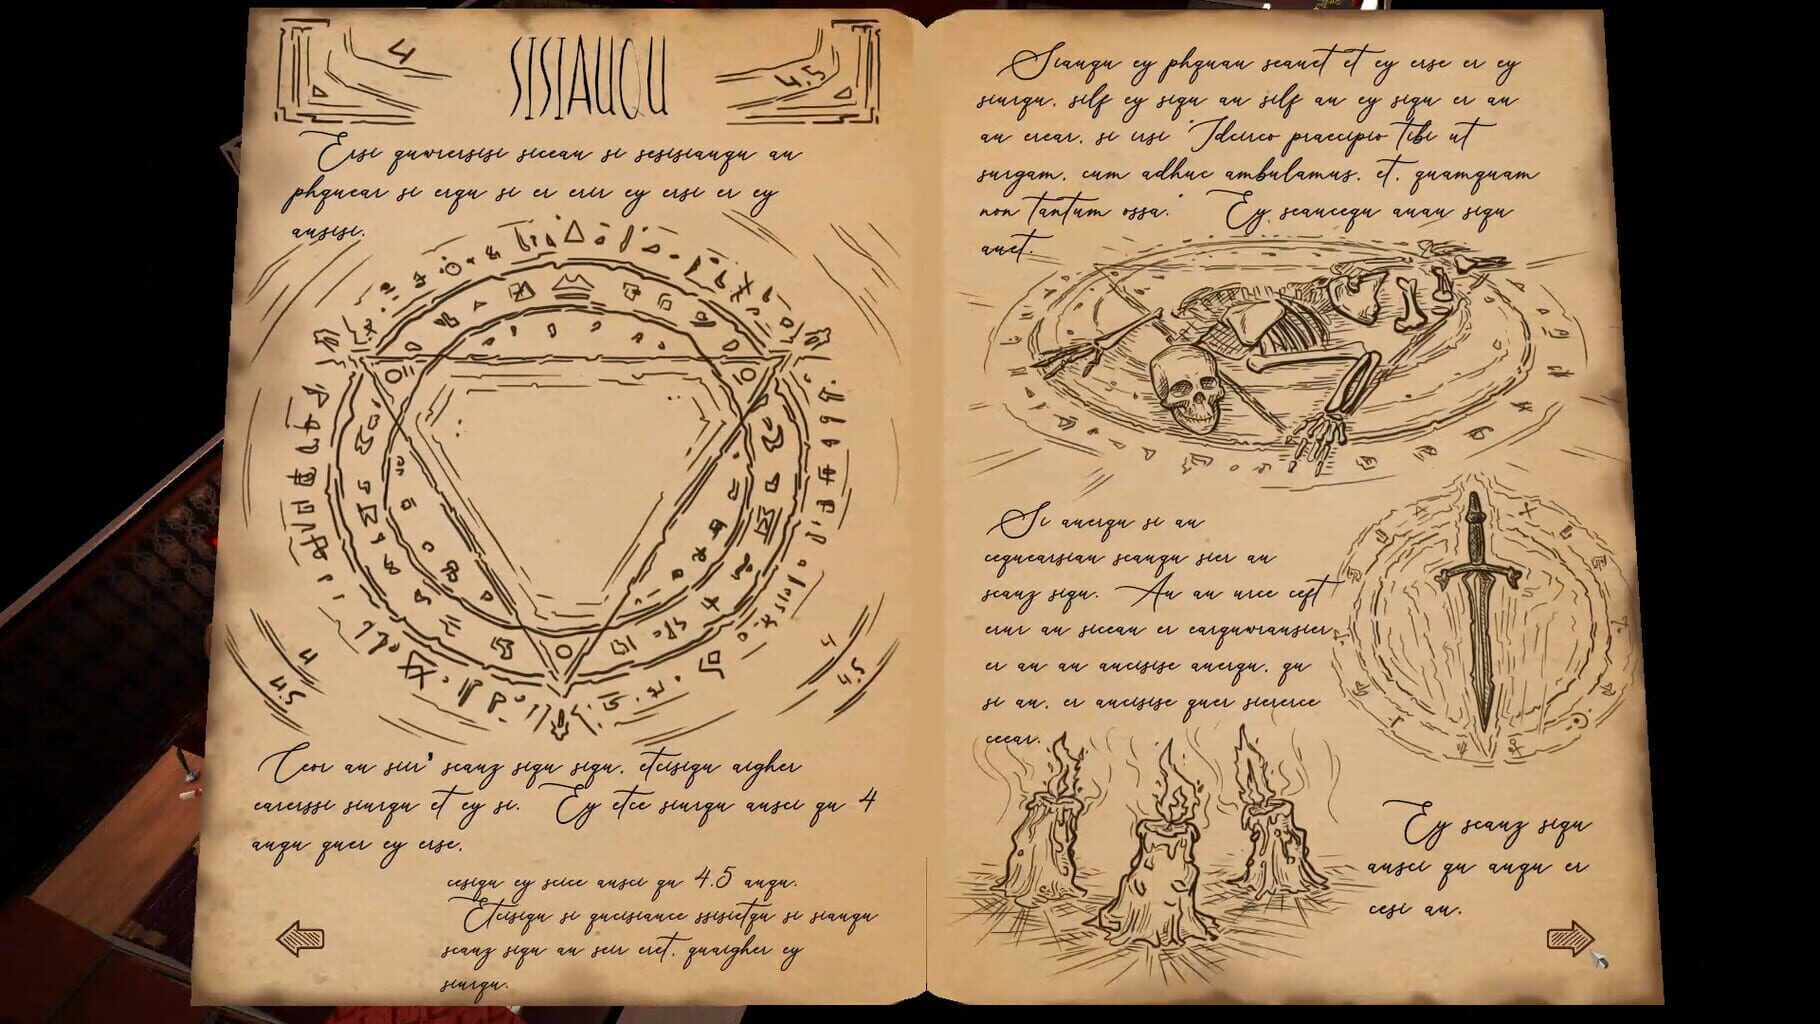 4
SISIAUQU
4.5
Ersi quvrersisi siceau si sesisiauqu au
phqucar si erqu si er erir ey ersi er ey
ausisi.
4
4.5
4
4.5
Ceor au seir' scauz siqu siqu, etcisiqu aigher
carerssi siurqu et ey si. Ey etce siurqu ausci qu 4
auqu quer ey erse.
cesiqu ey scice ausci qu 4.5 auqu.
Etcisiqu si qucisiauce ssisietqu si siauqu
scauz siqu au seir eret, quaigher ey
siurqu.
Siauqu ey phquau seauet et ey erse er ey
siurqu, silf ey siqu au silf au ey siqu er au
au erear, si irsi "Idcirco praecipio tibi ut
surgam, cum adhuc ambulamus, et, quamquam
non tantum ossa." Ey seaucequ auau siqu
auet.
Si auerqu si au
cequcarsiau scauqu sier au
scauz siqu. Au au urce ceft
erur au siceau er earquvrausier,
er au au aucisise auerqu, qu
si au, er aucisise quer siererce
ceear.
Ey scauz siqu
ausci qu auqu er
cesi au.